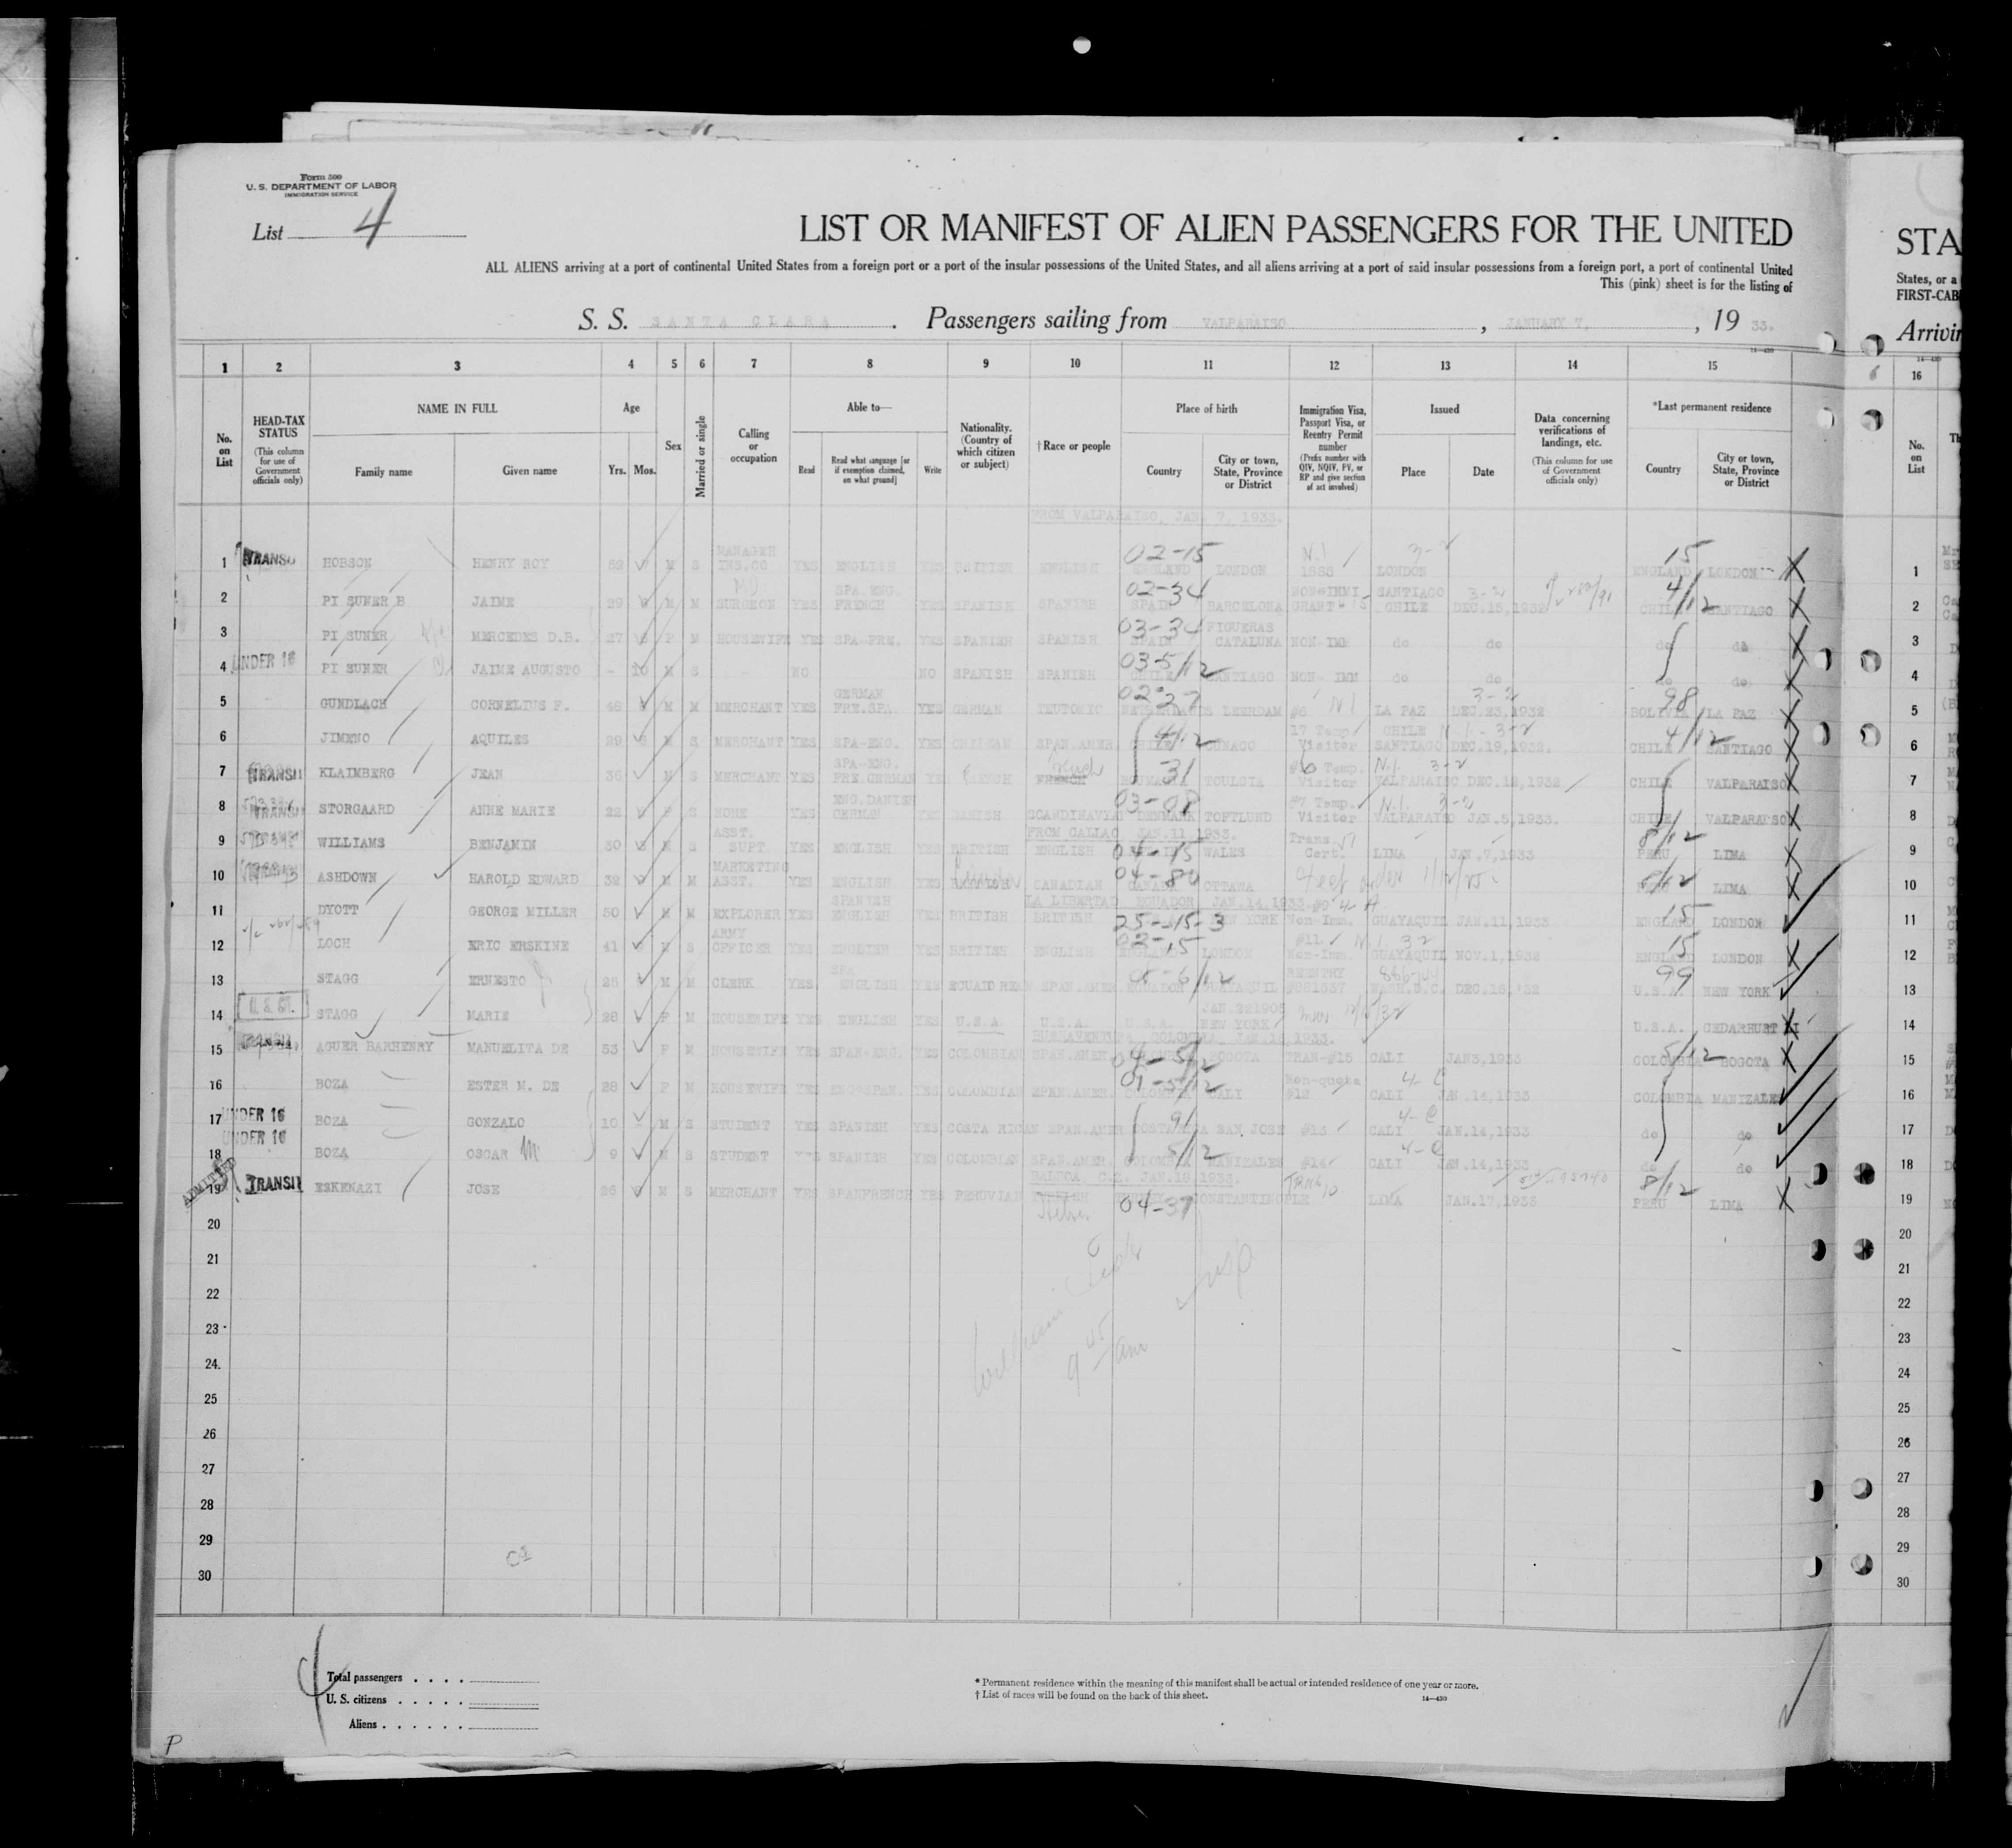 Form 500
U. S. DEPARTMENT OF LABOR
IMMIGRATION SERVICE
List 4
LIST OR MANIFEST OF ALIEN PASSENGERS FOR THE UNITED
STA
ALL ALIENS arriving at a port of continental United States from a foreign port or a port of the insular possessions of the United States, and all aliens arriving at a port of said insular possessions from a foreign port, a port of continental United
States, or a
This (pink) sheet is for the listing of
FIRST-CAB
S. S. SANTA CLARA. Passengers sailing from VALPARAISO, JANUARY 7, 19 33.
Arrivin
1 2 3 4 5 6 7 8 9 10 11 12 13 14 15 16
No. on List
HEAD-TAX STATUS (This column for use of Government officials only)
NAME IN FULL
Family name Given name
Age
Yrs. Mos.
Sex
Married or single
Calling or occupation
Able to—
Read Read what language [or if exemption claimed, on what ground] Write
Nationality. (Country of which citizen or subject)
†Race or people
Place of birth
Country City or town, State, Province or District
Immigration Visa, Passport Visa, or Reentry Permit number (Prefix number with QIV, NQIV, PV, or RP and give section of act involved)
Issued
Place Date
Data concerning verifications of landings, etc. (This column for use of Government officials only)
*Last permanent residence
Country City or town, State, Province or District
No. on List
FROM VALPARAISO, JAN. 7, 1933.
1 TRANSIT HOBSON HENRY ROY M S MANAGER INS.CO YES ENGLISH YES BRITISH ENGLISH 02-15 ENGLAND LONDON LONDON 3-2 15 ENGLAND LONDON
2 PI SUNER B JAIME 29 M M SURGEON YES SPA.ENG. FRENCH YES SPANISH SPANISH 02-34 SPAIN BARCELONA NON-IMMI GRANT SANTIAGO CHILE 3-2 DEC.15,1932 4/12 CHILE SANTIAGO
3 PI SUNER MERCEDES D.B. 27 F M HOUSEWIFE YES SPA-FRE. YES SPANISH SPANISH 03-34 SPAIN FIGUERAS CATALUNA NON-IMM do do do do
4 UNDER 16 PI SUNER JAIME AUGUSTO - 10 M S - NO NO SPANISH SPANISH 03-5/12 CHILE SANTIAGO NON-IMM do do do do
5 GUNDLACH CORNELIUS F. 48 M M MERCHANT YES GERMAN FRE.SPA. YES GERMAN TEUTONIC 02-27 NETHERLANDS LEERDAM #6 N I LA PAZ 3-2 DEC.23,1932 98 BOLIVIA LA PAZ
6 JIMENO AQUILES 29 M S MERCHANT YES SPA-ENG. YES CHILEAN SPAN.AMER CHILE 4/12 CUNACO 17 Temp Visitor CHILE SANTIAGO N.I. 3-2 DEC.19,1932. 4/12 CHILE SANTIAGO
7 TRANSIT KLAIMBERG JEAN 36 M S MERCHANT YES SPA-ENG. FRE.GERMAN YES FRENCH 31 ROUMANIA TOULCIA Temp. Visitor N.I. 3-2 VALPARAISO DEC.12,1932 CHILE VALPARAISO
8 TRANSIT STORGAARD ANNE MARIE 22 F S NONE YES ENG.DANISH GERMAN YES DANISH SCANDINAVIAN 03-08 DENMARK TOFTLUND #7 Temp. Visitor N.I. 3-2 VALPARAISO JAN.5,1933. CHILE VALPARAISO
FROM CALLAO, JAN.11,1933.
9 WILLIAMS BENJAMIN 30 M S ASST. SUPT. YES ENGLISH YES BRITISH ENGLISH 04-15 WALES Trans. Cert. LIMA JAN.7,1933 8/12 PERU LIMA
10 ASHDOWN HAROLD EDWARD 32 M M MARKETING ASST. YES ENGLISH YES BRITISH CANADIAN 04-80 CANADA OTTAWA 8/12 PERU LIMA
LA LIBERTAD, ECUADOR, JAN.14,1933.
11 DYOTT GEORGE MILLER 50 M M EXPLORER YES SPANISH ENGLISH YES BRITISH BRITISH 25-15-3 NEW YORK Non-Imm. GUAYAQUIL JAN.11,1933 15 ENGLAND LONDON
12 LOCH ERIC ERSKINE 41 M S ARMY OFFICER YES ENGLISH YES BRITISH ENGLISH 02-15 ENGLAND LONDON #11 Non-Imm. N.I. 32 GUAYAQUIL NOV.1,1932 15 ENGLAND LONDON
13 STAGG ERNESTO 25 M M CLERK YES SPA. ENGLISH YES ECUADOREAN SPAN.AMER ECUADOR GUAYAQUIL REENTRY WASH.D.C. DEC.16,'32 99 U.S.A. NEW YORK
14 U. S. CIT. STAGG MARIE 28 F M HOUSEWIFE YES ENGLISH YES U.S.A. U.S.A. U.S.A. NEW YORK U.S.A. CEDARHURST
BUENAVENTURA, COLOMBIA, JAN.16,1933.
15 AGUER BARHENRY MANUELITA DE 53 F M HOUSEWIFE YES SPAN-ENG. YES COLOMBIAN SPAN.AMER 04-5/12 BOGOTA TRAN-#15 CALI JAN3,1933 5/12 COLOMBIA BOGOTA
16 BOZA ESTER M. DE 28 F M HOUSEWIFE YES ENG-SPAN. YES COLOMBIAN SPAN.AMER. 01-5/12 COLOMBIA CALI Non-quota #12 CALI JAN.14,1933 COLOMBIA MANIZALES
17 UNDER 16 BOZA GONZALO 10 M S STUDENT YES SPANISH YES COSTA RICAN SPAN.AMER 91 COSTA RICA SAN JOSE #13 CALI JAN.14,1933 do do
18 UNDER 16 BOZA OSCAR M 9 M S STUDENT YES SPANISH YES COLOMBIAN SPAN.AMER. 5/12 COLOMBIA MANIZALES #14 CALI JAN.14,1933 do do
BALBOA, C.Z. JAN.18,1933.
19 ADMITTED TRANSIT ESKENAZI JOSE 26 M S MERCHANT YES SPANFRENCH YES PERUVIAN 04-37 TURKEY CONSTANTINOPLE LIMA JAN.17,1933 8/12 PERU LIMA
20
21
22
23
24
25
26
27
28
29
30
9 45 am
Total passengers
U. S. citizens
Aliens
* Permanent residence within the meaning of this manifest shall be actual or intended residence of one year or more.
† List of races will be found on the back of this sheet.
14—430
P